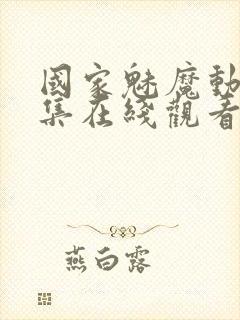 國家魅魔動
集在綫觀看
燕白露